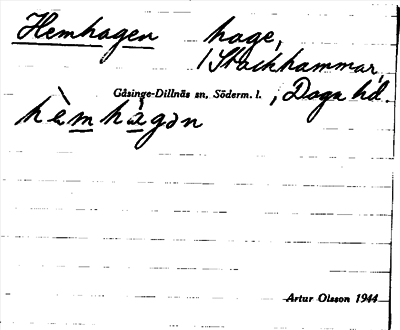 Hemhagen hage,
/Stockhammar,
Gåsinge-Dillnäs sn, Söderm. l. , Daga hd.
hèmhágən
Artur Olsson 1944